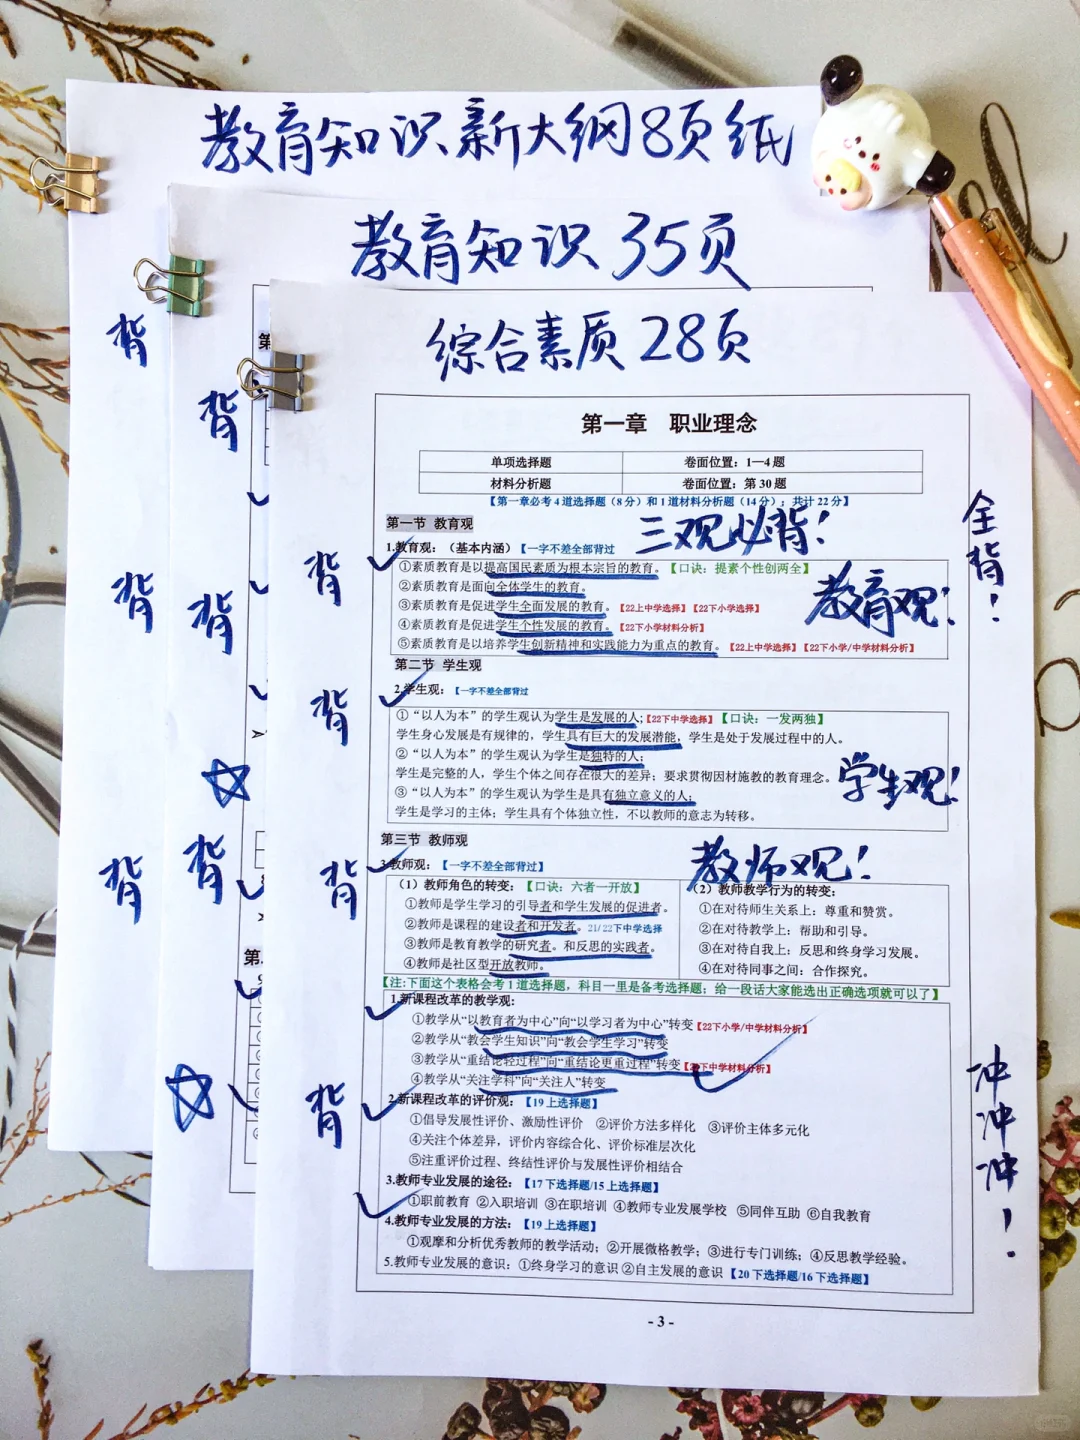 教育知识新大纲8页纸
教育知识35页
综合素质28页
背
背
背
背
背
背
背
背
背
背
第一章 职业理念
单项选择题 卷面位置：1—4题
材料分析题 卷面位置：第30题
【第一章必考4道选择题（8分）和1道材料分析题（14分）；共计22分】
第一节 教育观
三观必背！
全背！
1.教育观：（基本内涵）【一字不差全部背过
①素质教育是以提高国民素质为根本宗旨的教育。【口诀：提素个性创两全】
②素质教育是面向全体学生的教育。
教育观！
③素质教育是促进学生全面发展的教育。【22上中学选择】【22下小学选择】
④素质教育是促进学生个性发展的教育。【22下小学材料分析】
⑤素质教育是以培养学生创新精神和实践能力为重点的教育。【22上中学选择】【22下小学/中学材料分析】
第二节 学生观
2.学生观：【一字不差全部背过
①“以人为本”的学生观认为学生是发展的人;【22下中学选择】【口诀：一发两独】
学生身心发展是有规律的，学生具有巨大的发展潜能，学生是处于发展过程中的人。
②“以人为本”的学生观认为学生是独特的人;
学生是完整的人，学生个体之间存在很大的差异；要求贯彻因材施教的教育理念。
学生观！
③“以人为本”的学生观认为学生是具有独立意义的人;
学生是学习的主体；学生具有个体独立性，不以教师的意志为转移。
第三节 教师观
教师观！
3.教师观：【一字不差全部背过】
（1）教师角色的转变：【口诀：六者一开放】
①教师是学生学习的引导者和学生发展的促进者。
②教师是课程的建设者和开发者。21/22下中学选择
③教师是教育教学的研究者。和反思的实践者。
④教师是社区型开放教师。
（2）教师教学行为的转变：
①在对待师生关系上：尊重和赞赏。
②在对待教学上：帮助和引导。
③在对待自我上：反思和终身学习发展。
④在对待同事之间：合作探究。
【注:下面这个表格会考1道选择题，科目一里是备考选择题；给一段话大家能选出正确选项就可以了】
1.新课程改革的教学观:
①教学从“以教育者为中心”向“以学习者为中心”转变【22下小学/中学材料分析】
②教学从“教会学生知识”向“教会学生学习”转变
③教学从“重结论轻过程”向“重结论更重过程”转变【22下中学材料分析】
④教学从“关注学科”向“关注人”转变
2.新课程改革的评价观:【19上选择题】
①倡导发展性评价、激励性评价 ②评价方法多样化 ③评价主体多元化
④关注个体差异，评价内容综合化、评价标准层次化
⑤注重评价过程、终结性评价与发展性评价相结合
3.教师专业发展的途径：【17下选择题/15上选择题】
①职前教育 ②入职培训 ③在职培训 ④教师专业发展学校 ⑤同伴互助 ⑥自我教育
4.教师专业发展的方法：【19上选择题】
①观摩和分析优秀教师的教学活动；②开展微格教学；③进行专门训练；④反思教学经验。
5.教师专业发展的意识：①终身学习的意识 ②自主发展的意识【20下选择题/16下选择题】
冲冲冲！
- 3 -